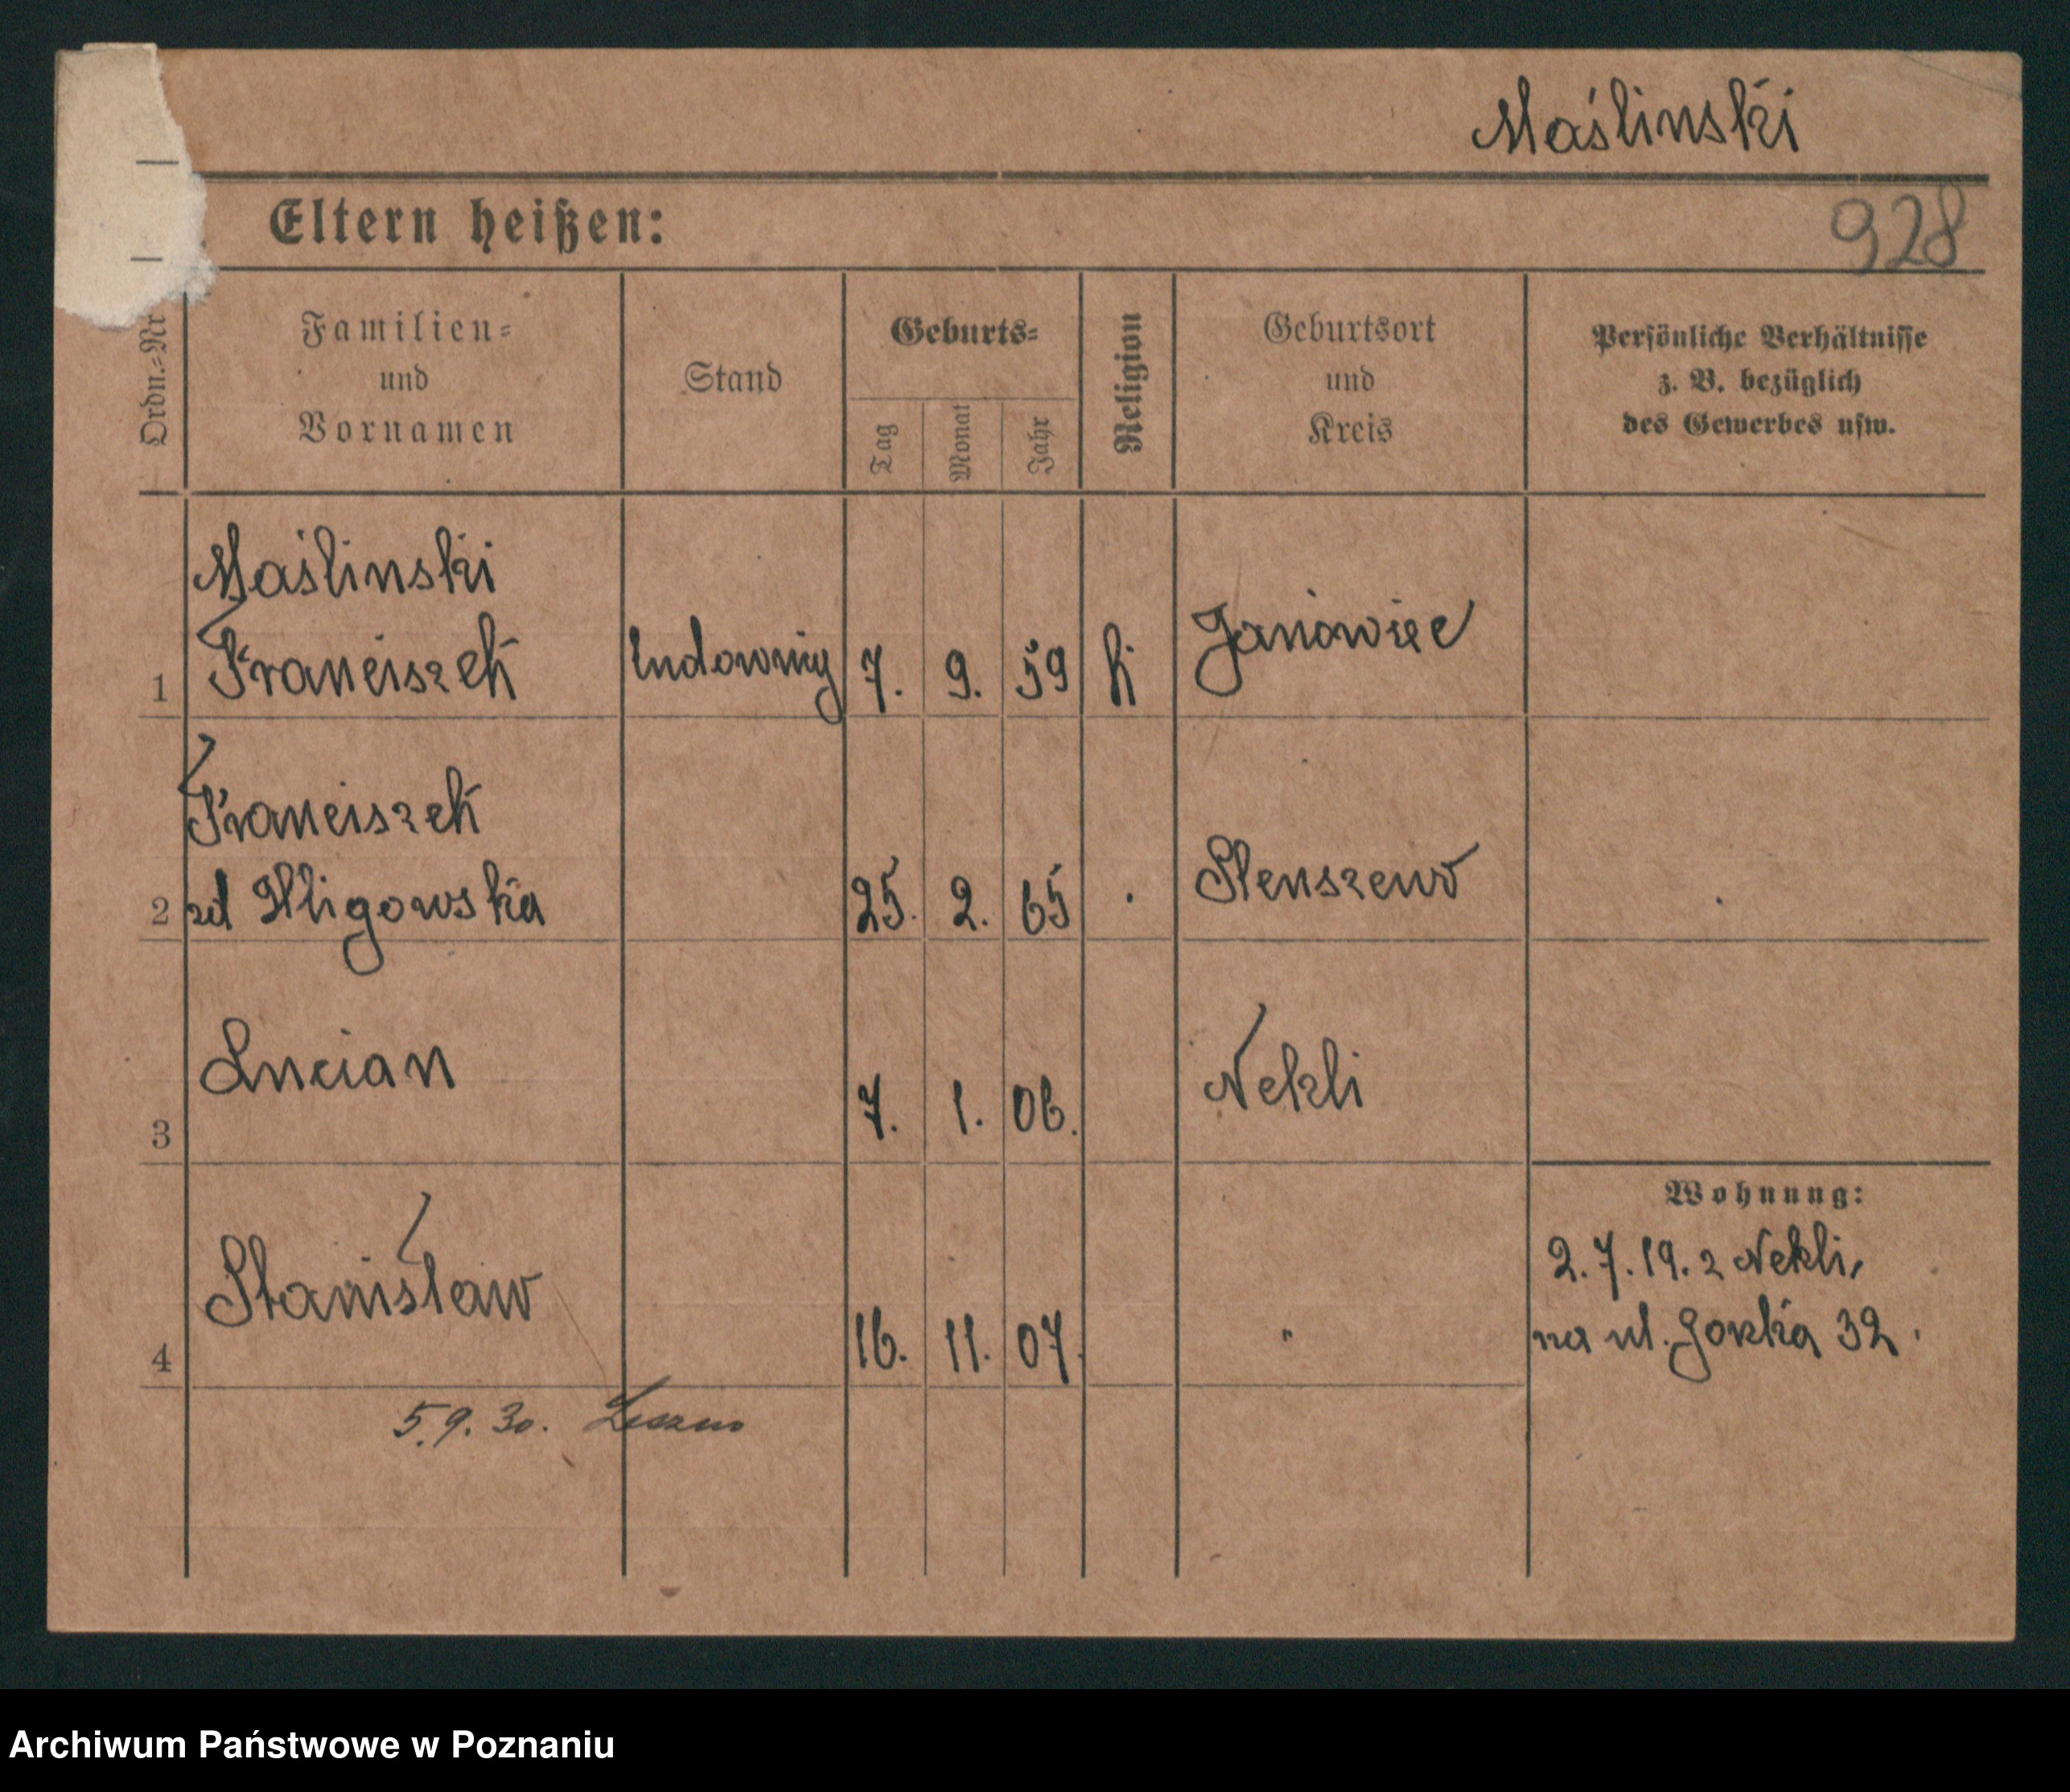 Maślinski
Eltern heißen:
928
Ordn.=Nr
Familien=
und
Vornamen
Stand
Geburts=
Tag
Monat
Jahr
Religion
Geburtsort
und
Kreis
Persönliche Verhältnisse
z. B. bezüglich
des Gewerbes usw.
Maślinski
1 Franciszek budowniy 7. 9. 59 k Janówiec
Franciszek
2 zd Kligowska 25. 2. 65 Stenszewo
3 Lucian 7. 1. 06. Nekli
4 Stanisław 16. 11. 07. "
Wohnung:
2. 7. 19. z Nekli,
na ul. Gorka 32.
5.9.30. Leszno
Archiwum Państwowe w Poznaniu